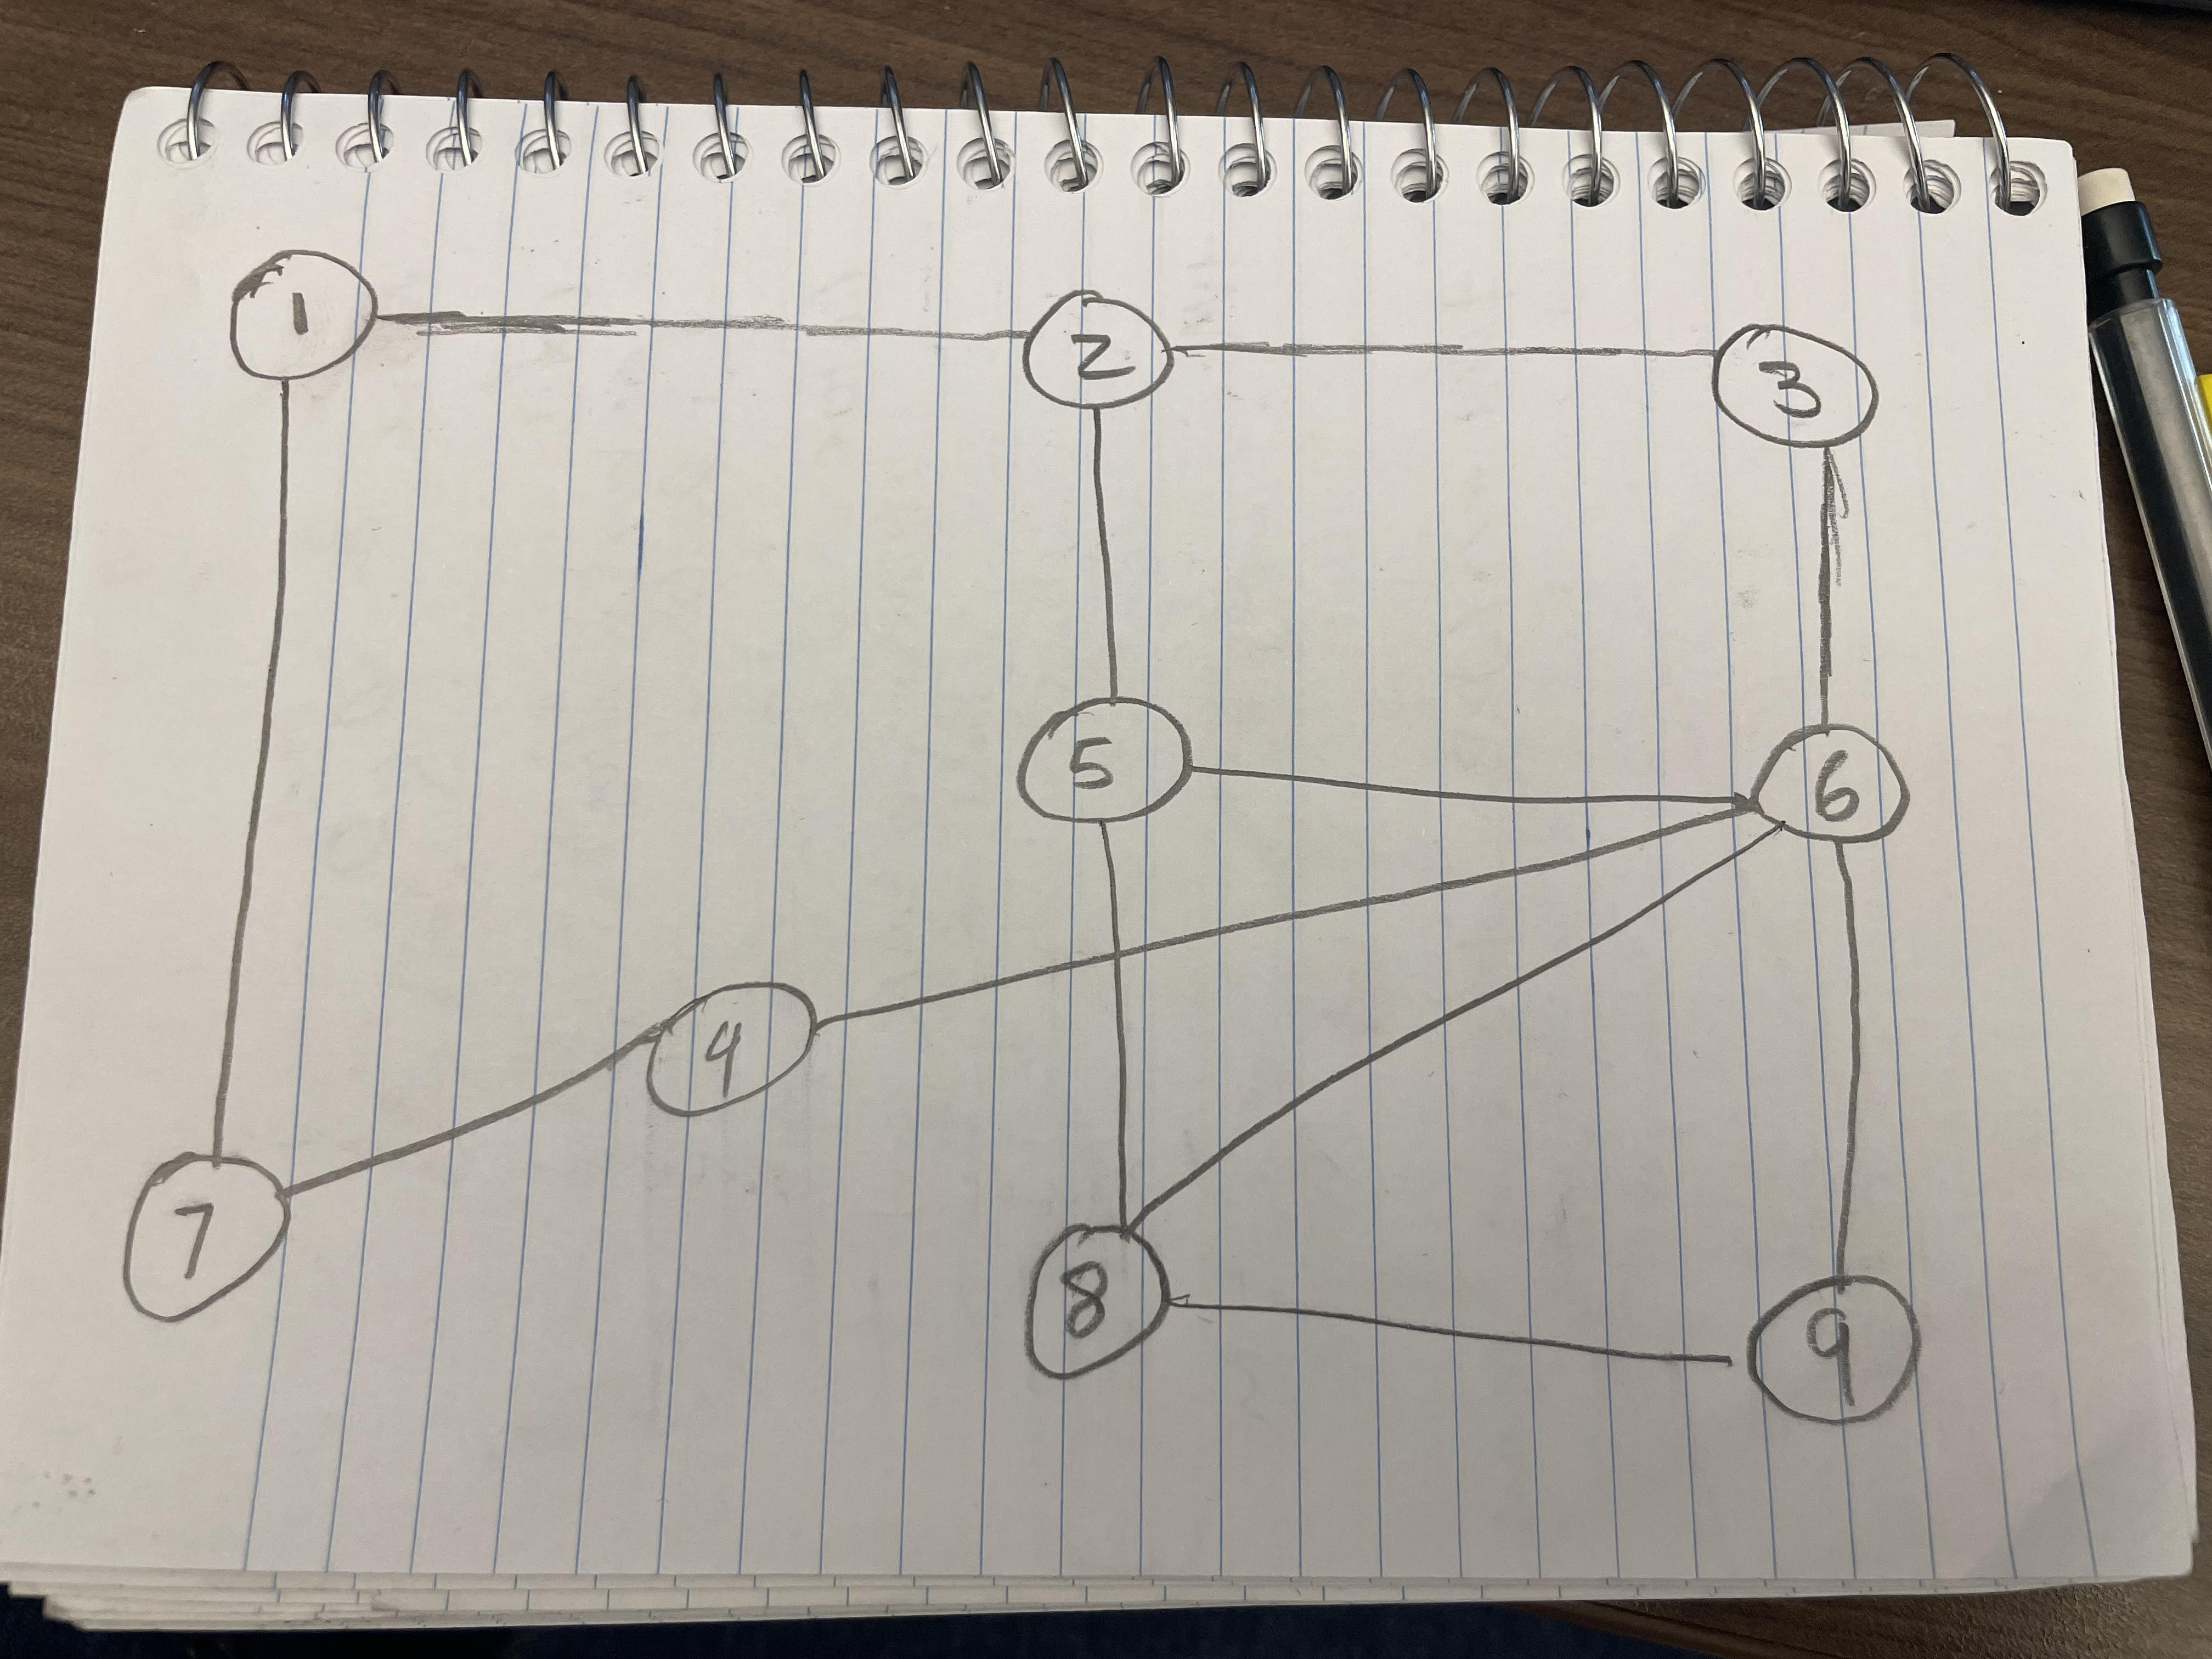 1
2
3
5
6
4
7
8
9